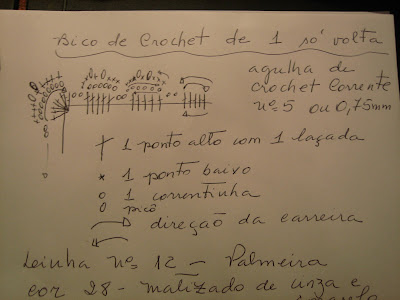 Bico de Crochet de 1 só volta
agulha de
crochet Corrente
nº 5 ou 0,75mm
1 ponto alto com 1 laçada
1 ponto baixo
1 correntinha
picô
direção da carreira
Leinha nº 12 - Palmeira
cor 28 - matizado de cinza e